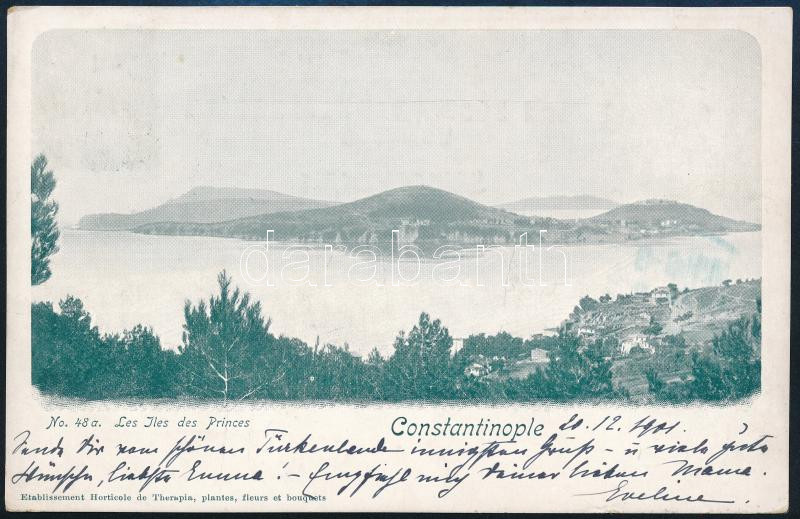 darabanth
No. 48a. Les Iles des Princes
Constantinople 20.12.1901.
Sende Dir vom schönen Türkenlande innigsten Gruß - u viele gute
Wünsche, liebste Emma! - Empfiehl mich deiner lieben Mama.
Etablissement Horticole de Therapia, plantes, fleurs et bouquets
Eveline.